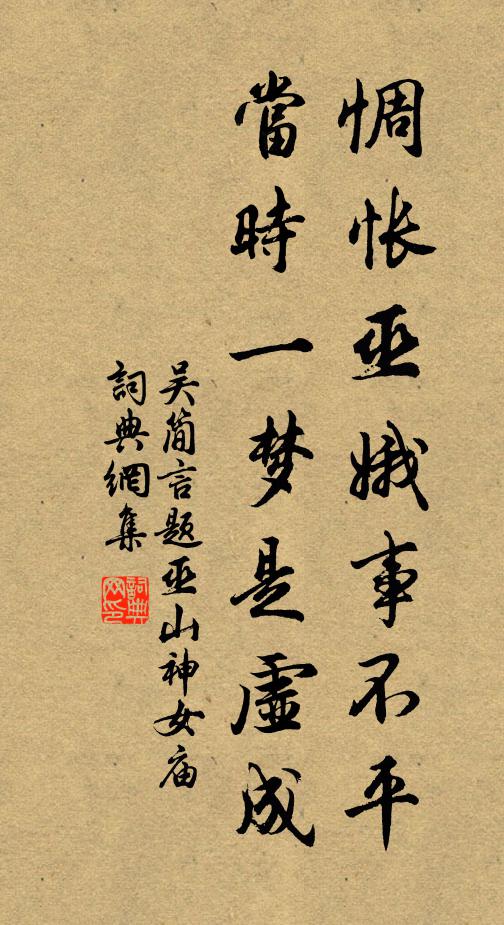 惆怅巫娥事不平
當時一梦是虛成
吴简言題巫山神女庙
詞典網集
詞典網印